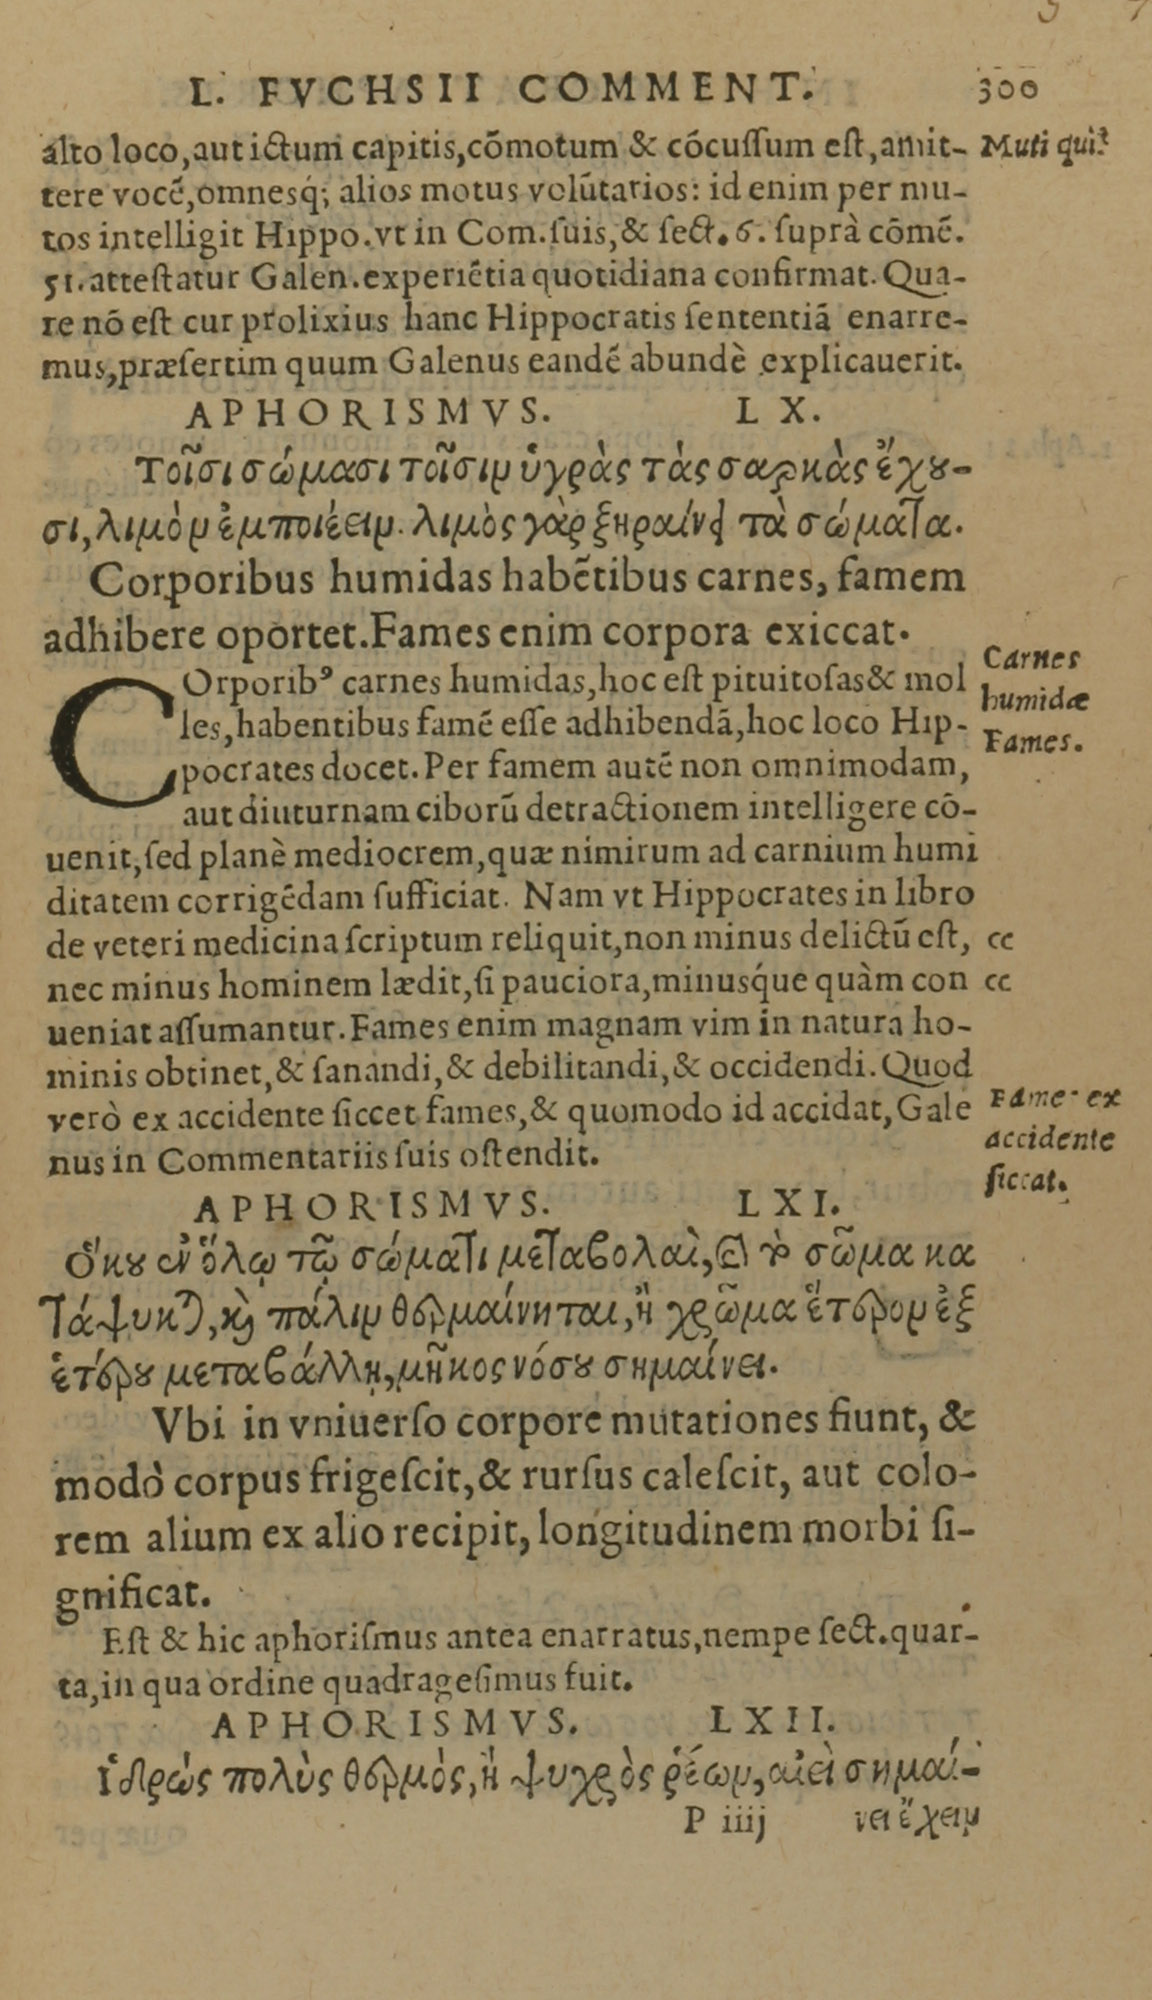 L. FVCHSII COMMENT. 300
alto loco,aut ictum capitis,cōmotum & cōcuſſum eſt,amit-
Muti qui?
tere vocē,omnesq́; alios motus volūtarios: id enim per mu-
tos intelligit Hippo.vt in Com.ſuis,& ſect.6. ſuprà cōmē.
51.atteſtatur Galen.experiētia quotidiana confirmat. Qua-
re nō eſt cur prolixius hanc Hippocratis ſententiā enarre-
mus,præſertim quum Galenus eandē abundè explicauerit.
APHORISMVS. LX.
Τοῖσι σώμασι τοῖσιν ὑγρὰς τὰς σαρκὰς ἔχου-
σι, λιμὸν ἐμποιέειν. λιμὸς γὰρ ξηραίνει τὰ σώματα.
Corporibus humidas habētibus carnes, famem
adhibere oportet.Fames enim corpora exiccat.
COrporibꝰ carnes humidas,hoc eſt pituitoſas& mol
Carnes
humidæ
les,habentibus famē eſſe adhibendā,hoc loco Hip-
Fames.
pocrates docet. Per famem autē non omnimodam,
aut diuturnam ciborū detractionem intelligere cō-
uenit,ſed planè mediocrem,quæ nimirum ad carnium humi
ditatem corrigēdam ſufficiat. Nam vt Hippocrates in libro
de veteri medicina ſcriptum reliquit,non minus delictū eſt,
cc
nec minus hominem lædit,ſi pauciora,minusq́ue quàm con
cc
ueniat aſſumantur.Fames enim magnam vim in natura ho-
minis obtinet,& ſanandi,& debilitandi,& occidendi. Quod
verò ex accidente ſiccet fames,& quomodo id accidat, Gale
Fames ex
accidente
nus in Commentariis ſuis oſtendit.
ſiccat.
APHORISMVS. LXI.
Ὅκου ἐν ὅλῳ τῷ σώματι μεταβολαὶ, καὶ τὸ σῶμα κα
τάψυκται, καὶ πάλιν θερμαίνηται, ἢ χρῶμα ἕτερον ἐξ
ἑτέρου μεταβάλλῃ, μῆκος νόσου σημαίνει.
Vbi in vniuerſo corpore mutationes fiunt, &
modò corpus frigeſcit,& rurſus caleſcit, aut colo-
rem alium ex alio recipit, longitudinem morbi ſi-
gnificat.
Eſt & hic aphoriſmus antea enarratus,nempe ſect.quar-
ta,in qua ordine quadrageſimus fuit.
APHORISMVS. LXII.
Ἱδρὼς πολὺς θερμὸς, ἢ ψυχρὸς ῥέων, αἰεὶ σημαί-
P iiij νει ἔχειν